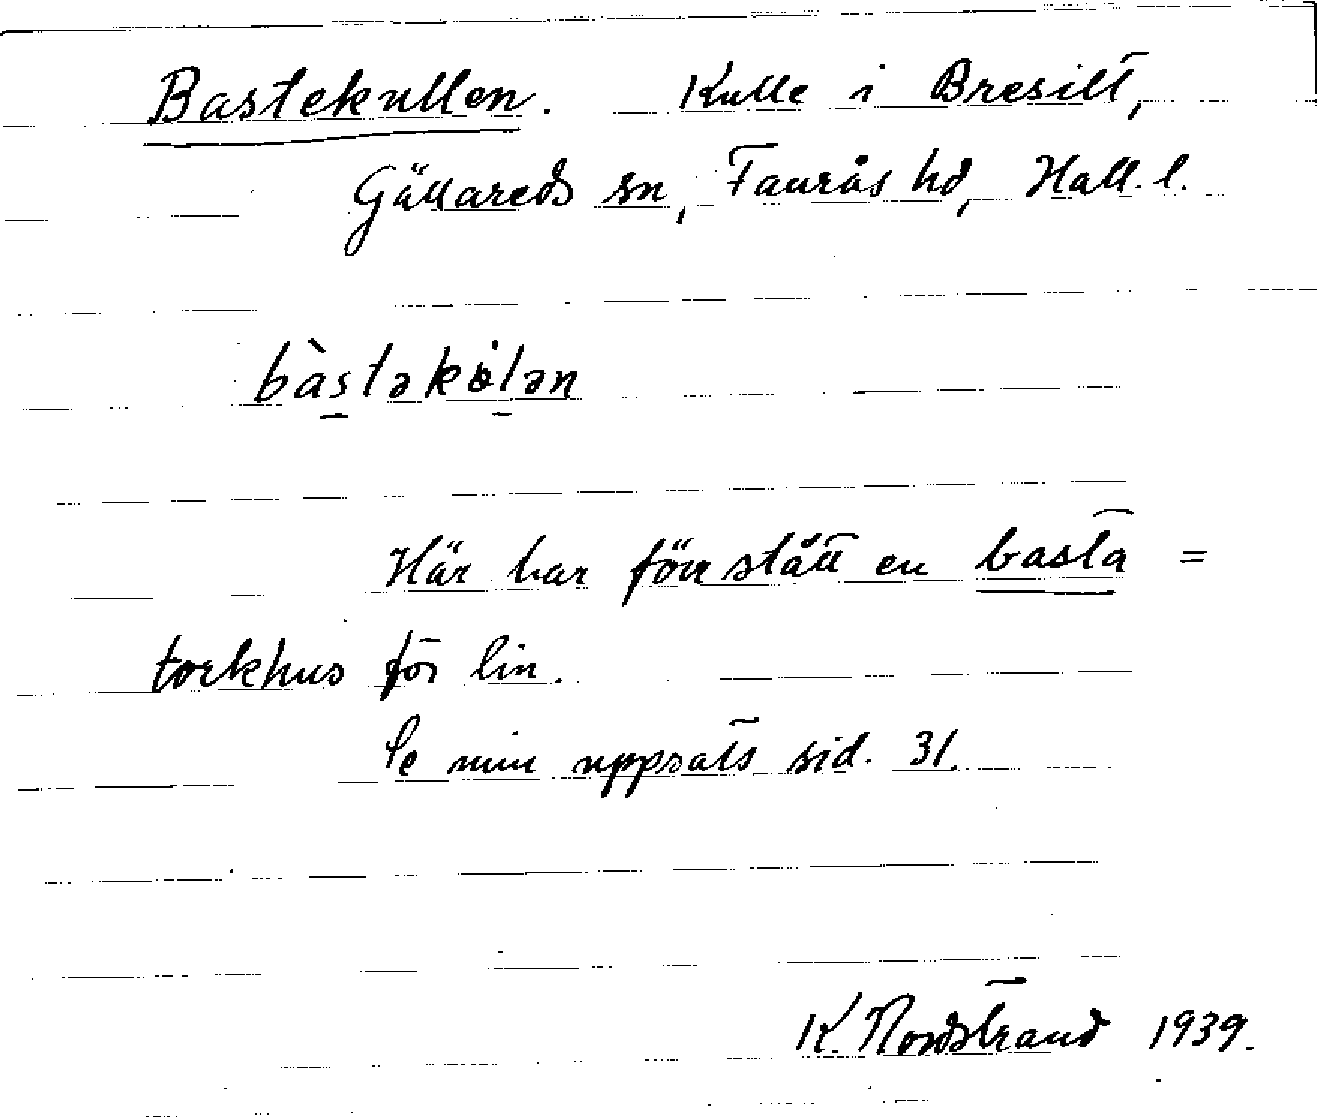 Bastekullen. Kulle i Bresilt,
Gällareds sn, Faurås hd, Hall. l.
bàs̲təkol̲ən
Här har förr stått en basta =
torkhus för lin.
Se min uppsats sid. 31.
K. Nordstrand 1939.